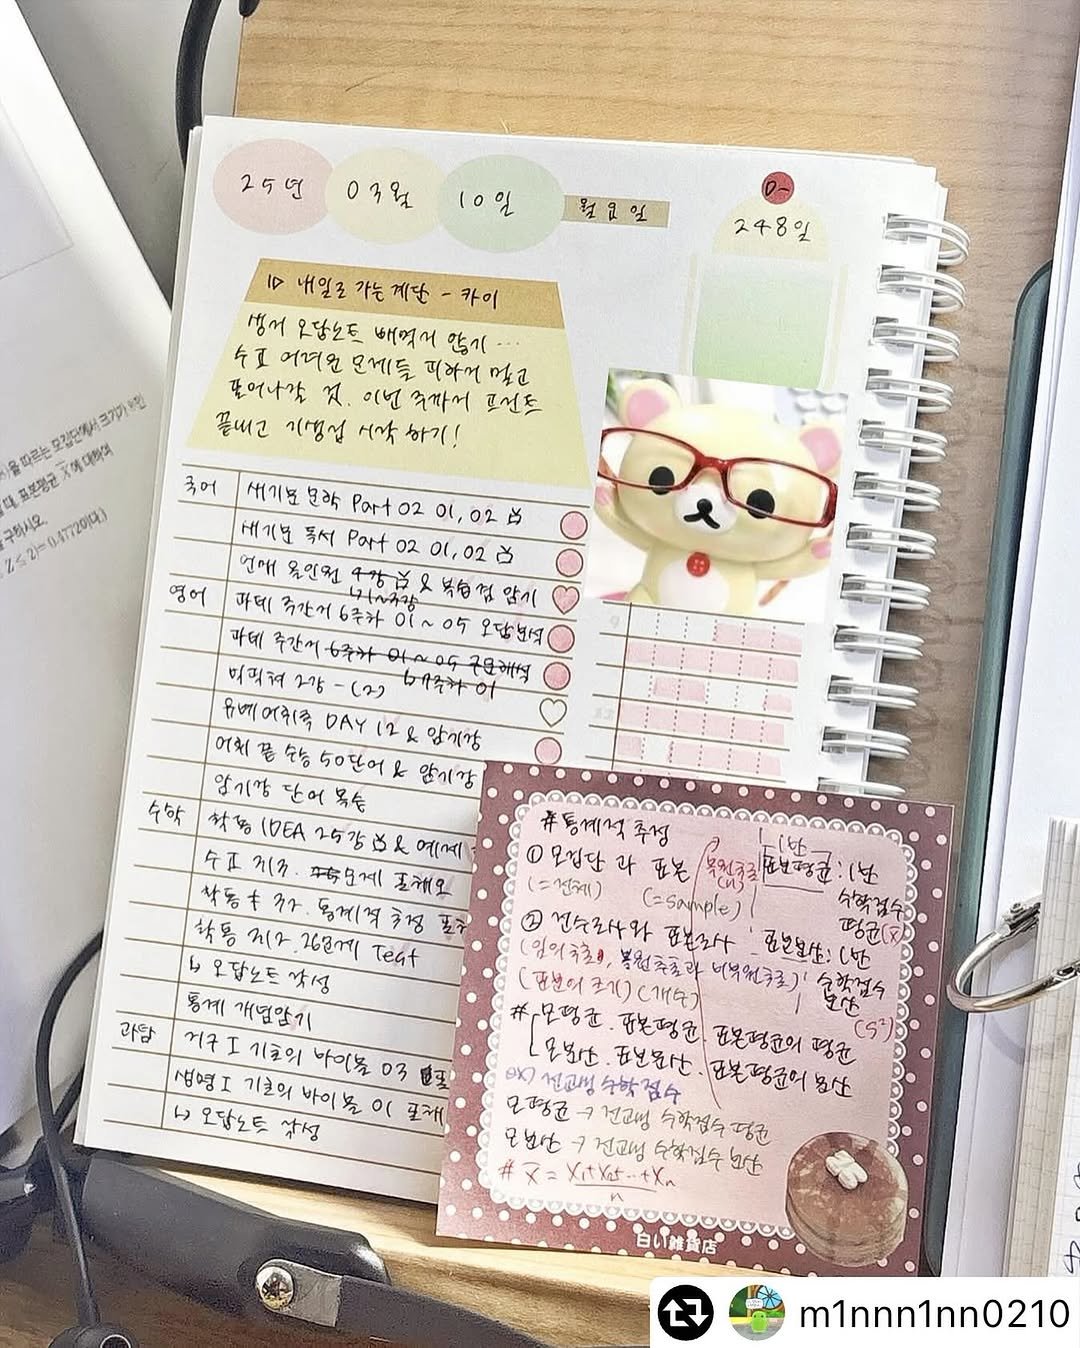 25년 03월 10일 월요일
D-
248일
내일로 가는 계단 - 카이
생지 오답노트 빼먹지 않기 ...
수II 어려운 문제들 피하지 말고
풀어나갈 것. 이번 주까지 프린트
끝내고 기생집 시작하기!
국어 새기분 문학 Part 02 01, 02
새기분 독서 Part 02 01, 02
언매 올인원 & 복습 겸 암기
영어 주간지 6주차 01 ~ 05 오답분석
주간지 6주차 01 ~ 05 구문해석
2강 - (2)
DAY 12 & 암기장
어휘 끝 수능 50단어 & 암기장
암기장 단어 복습
수학 확통 IDEA 25강 & 예제
수II 문제 풀채오
확통 통계적 추정
확통 26문제 Test
↳ 오답노트 작성
통계 개념암기
과탐 지구I 기초의 바이블 03
생명I 기초의 바이블 01
↳ 오답노트 작성
# 통계적 추정
① 모집단과 표본
(=전체) (=sample)
복원추출
(n)
1반
표본평균: 1반
수학점수
평균(x̄)
② 전수조사와 표본조사
(임의추출, 복원추출과 비복원추출)
(표본의 크기) (개수)
표본분산: 1반
수학점수
분산
(S²)
# 모평균. 표본평균. 표본평균의 평균
모분산. 표본분산. 표본평균의 분산
ex) 전교생 수학점수
모평균 → 전교생 수학점수 평균
모분산 → 전교생 수학점수 분산
# X̄ = X₁+X₂+…+Xn
n
白い雑貨店
을 따르는 모집단에서 크기가
때, 표본평균 X̄에 대하여
구하시오.
Z ≤ 2)= 0.4772이다.)
m1nnn1nn0210